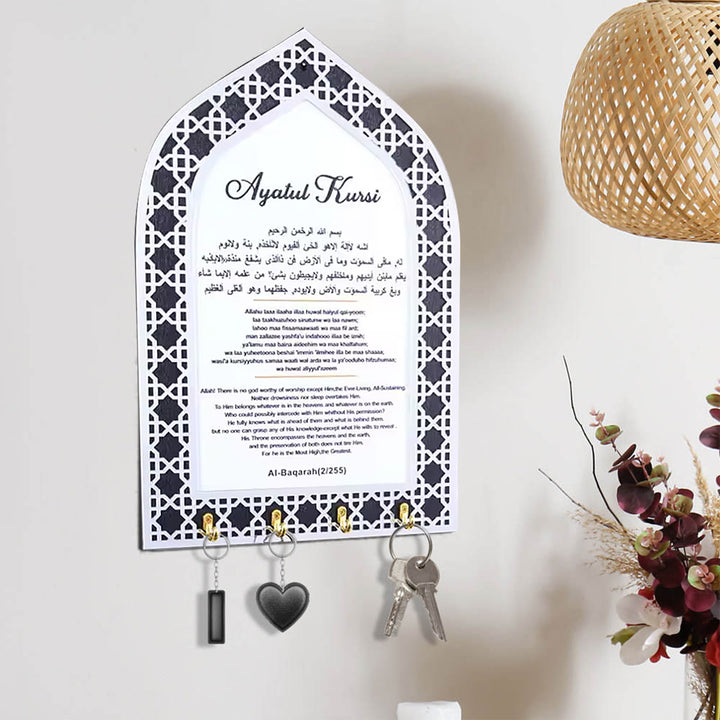 Ayatul Kursi
بسم الله الرحمن الرحيم
لاالة إلاهو الحى القيوم
له، مافى السموت وما فى الأرض
يعلم مابين أيديهم وماخلفهم ولايحيطون بشئ؟ من علمه إلابما شاء
السموت والأرض ولايوده، حفظهما وهو العلى العظيم
Allahu laaa ilaaha illaa huwal haiyul qai-yoom;
laa taakhuzuhoo sinatunw wa laa nawm;
lahoo maa fissamaawaati wa maa fil ard;
man zallazee yashfa'u indahooo illaa be iznih;
ya'lamu maa baina aideehim wa maa khalfahum;
wa laa yuheetoona beshai 'immin 'ilmihee illa be maa shaaa,
wasi'a kursiyyuhus samaa waati wal arda wa la ya'ooduho hifzuhumaa;
wa huwal aliyyul'azeem
Allah! There is no god worthy of worship except Him,the Ever-Living, All-Sustaining.
Neither drowsiness nor sleep overtakes Him.
To Him belongs whatever is in the heavens and whatever is on the earth.
Who could possibly intercede with Him whithout His permission?
He fully knows what is ahead of them and what is behind them.
but no one can grasp any of His knowledge-excrpt what He wills to reveal .
His Throne encompasses the heavens and the earth,
and the preservation of both does not tire Him.
For he is the Most High,the Greatest.
Al-Baqarah(2/255)